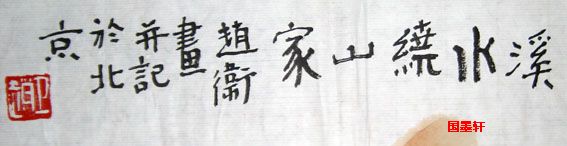 溪水繞山家
趙衛
畫
并記
於北
京
国墨轩